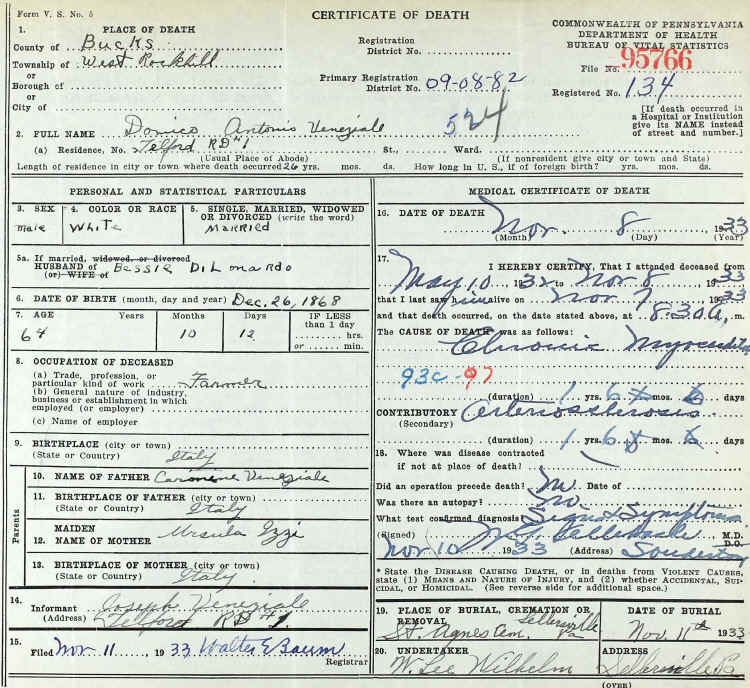 Form V. S. No. 5
CERTIFICATE OF DEATH
COMMONWEALTH OF PENNSYLVANIA
DEPARTMENT OF HEALTH
BUREAU OF VITAL STATISTICS
1. PLACE OF DEATH
County of Bucks
Township of West Rockhill
or
Borough of
or
City of
Registration
District No.
Primary Registration
District No. 09-08-82
File No. 95766
Registered No. 134
[If death occurred in
a Hospital or Institution
give its NAME instead
of street and number.]
524
2. FULL NAME Domico Antonio Veneziale
(a) Residence, No. Telford RD #1 St., Ward.
(Usual Place of Abode) (If nonresident give city or town and State)
Length of residence in city or town where death occurred 26 yrs. mos. ds. How long in U. S., if of foreign birth? yrs. mos. ds.
PERSONAL AND STATISTICAL PARTICULARS
3. SEX
Male
4. COLOR OR RACE
White
5. SINGLE, MARRIED, WIDOWED
OR DIVORCED (write the word)
Married
5a. If married, widowed, or divorced
HUSBAND of Bessie DiLonardo
(or) WIFE of
6. DATE OF BIRTH (month, day and year) Dec. 26, 1868
7. AGE Years Months Days IF LESS
than 1 day
64 10 12 hrs.
or min.
8. OCCUPATION OF DECEASED
(a) Trade, profession, or
particular kind of work Farmer
(b) General nature of industry,
business or establishment in which
employed (or employer)
(c) Name of employer
9. BIRTHPLACE (city or town)
(State or Country) Italy
Parents
10. NAME OF FATHER Carmene Veneziale
11. BIRTHPLACE OF FATHER (city or town)
(State or Country) Italy
12. MAIDEN
NAME OF MOTHER Ursula Izzi
13. BIRTHPLACE OF MOTHER (city or town)
(State or Country) Italy
14. Informant Joseph Veneziale
(Address) Telford RD #1
15. Filed Nov 11, 1933 Walter E Baum
Registrar
MEDICAL CERTIFICATE OF DEATH
16. DATE OF DEATH Nov. 8 1933
(Month) (Day) (Year)
17. I HEREBY CERTIFY, That I attended deceased from
May 10 1932 to Nov 8, 1933
that I last saw him alive on Nov 7 1933
and that death occurred, on the date stated above, at 8:30 a, m.
The CAUSE OF DEATH was as follows:
Chronic Myocarditis
93c-97
(duration) 1 yrs. 6 mos. days
CONTRIBUTORY Arteriosclerosis
(Secondary)
(duration) 1 yrs. 6 mos. days
18. Where was disease contracted
if not at place of death?
Did an operation precede death? No Date of
Was there an autopsy? no
What test confirmed diagnosis? Signs & Symptoms
(Signed) M.D.
D.O.
Nov 10 1933 (Address) Souderton
* State the DISEASE CAUSING DEATH, or in deaths from VIOLENT CAUSES,
state (1) MEANS AND NATURE OF INJURY, and (2) whether ACCIDENTAL, SUI-
CIDAL, or HOMICIDAL. (See reverse side for additional space.)
19. PLACE OF BURIAL, CREMATION OR
REMOVAL Sellersville
St. Agnes Cem. Pa
DATE OF BURIAL
Nov. 11th 1933
20. UNDERTAKER
W. Lee Wilhelm
ADDRESS
Sellersville Pa
(OVER)